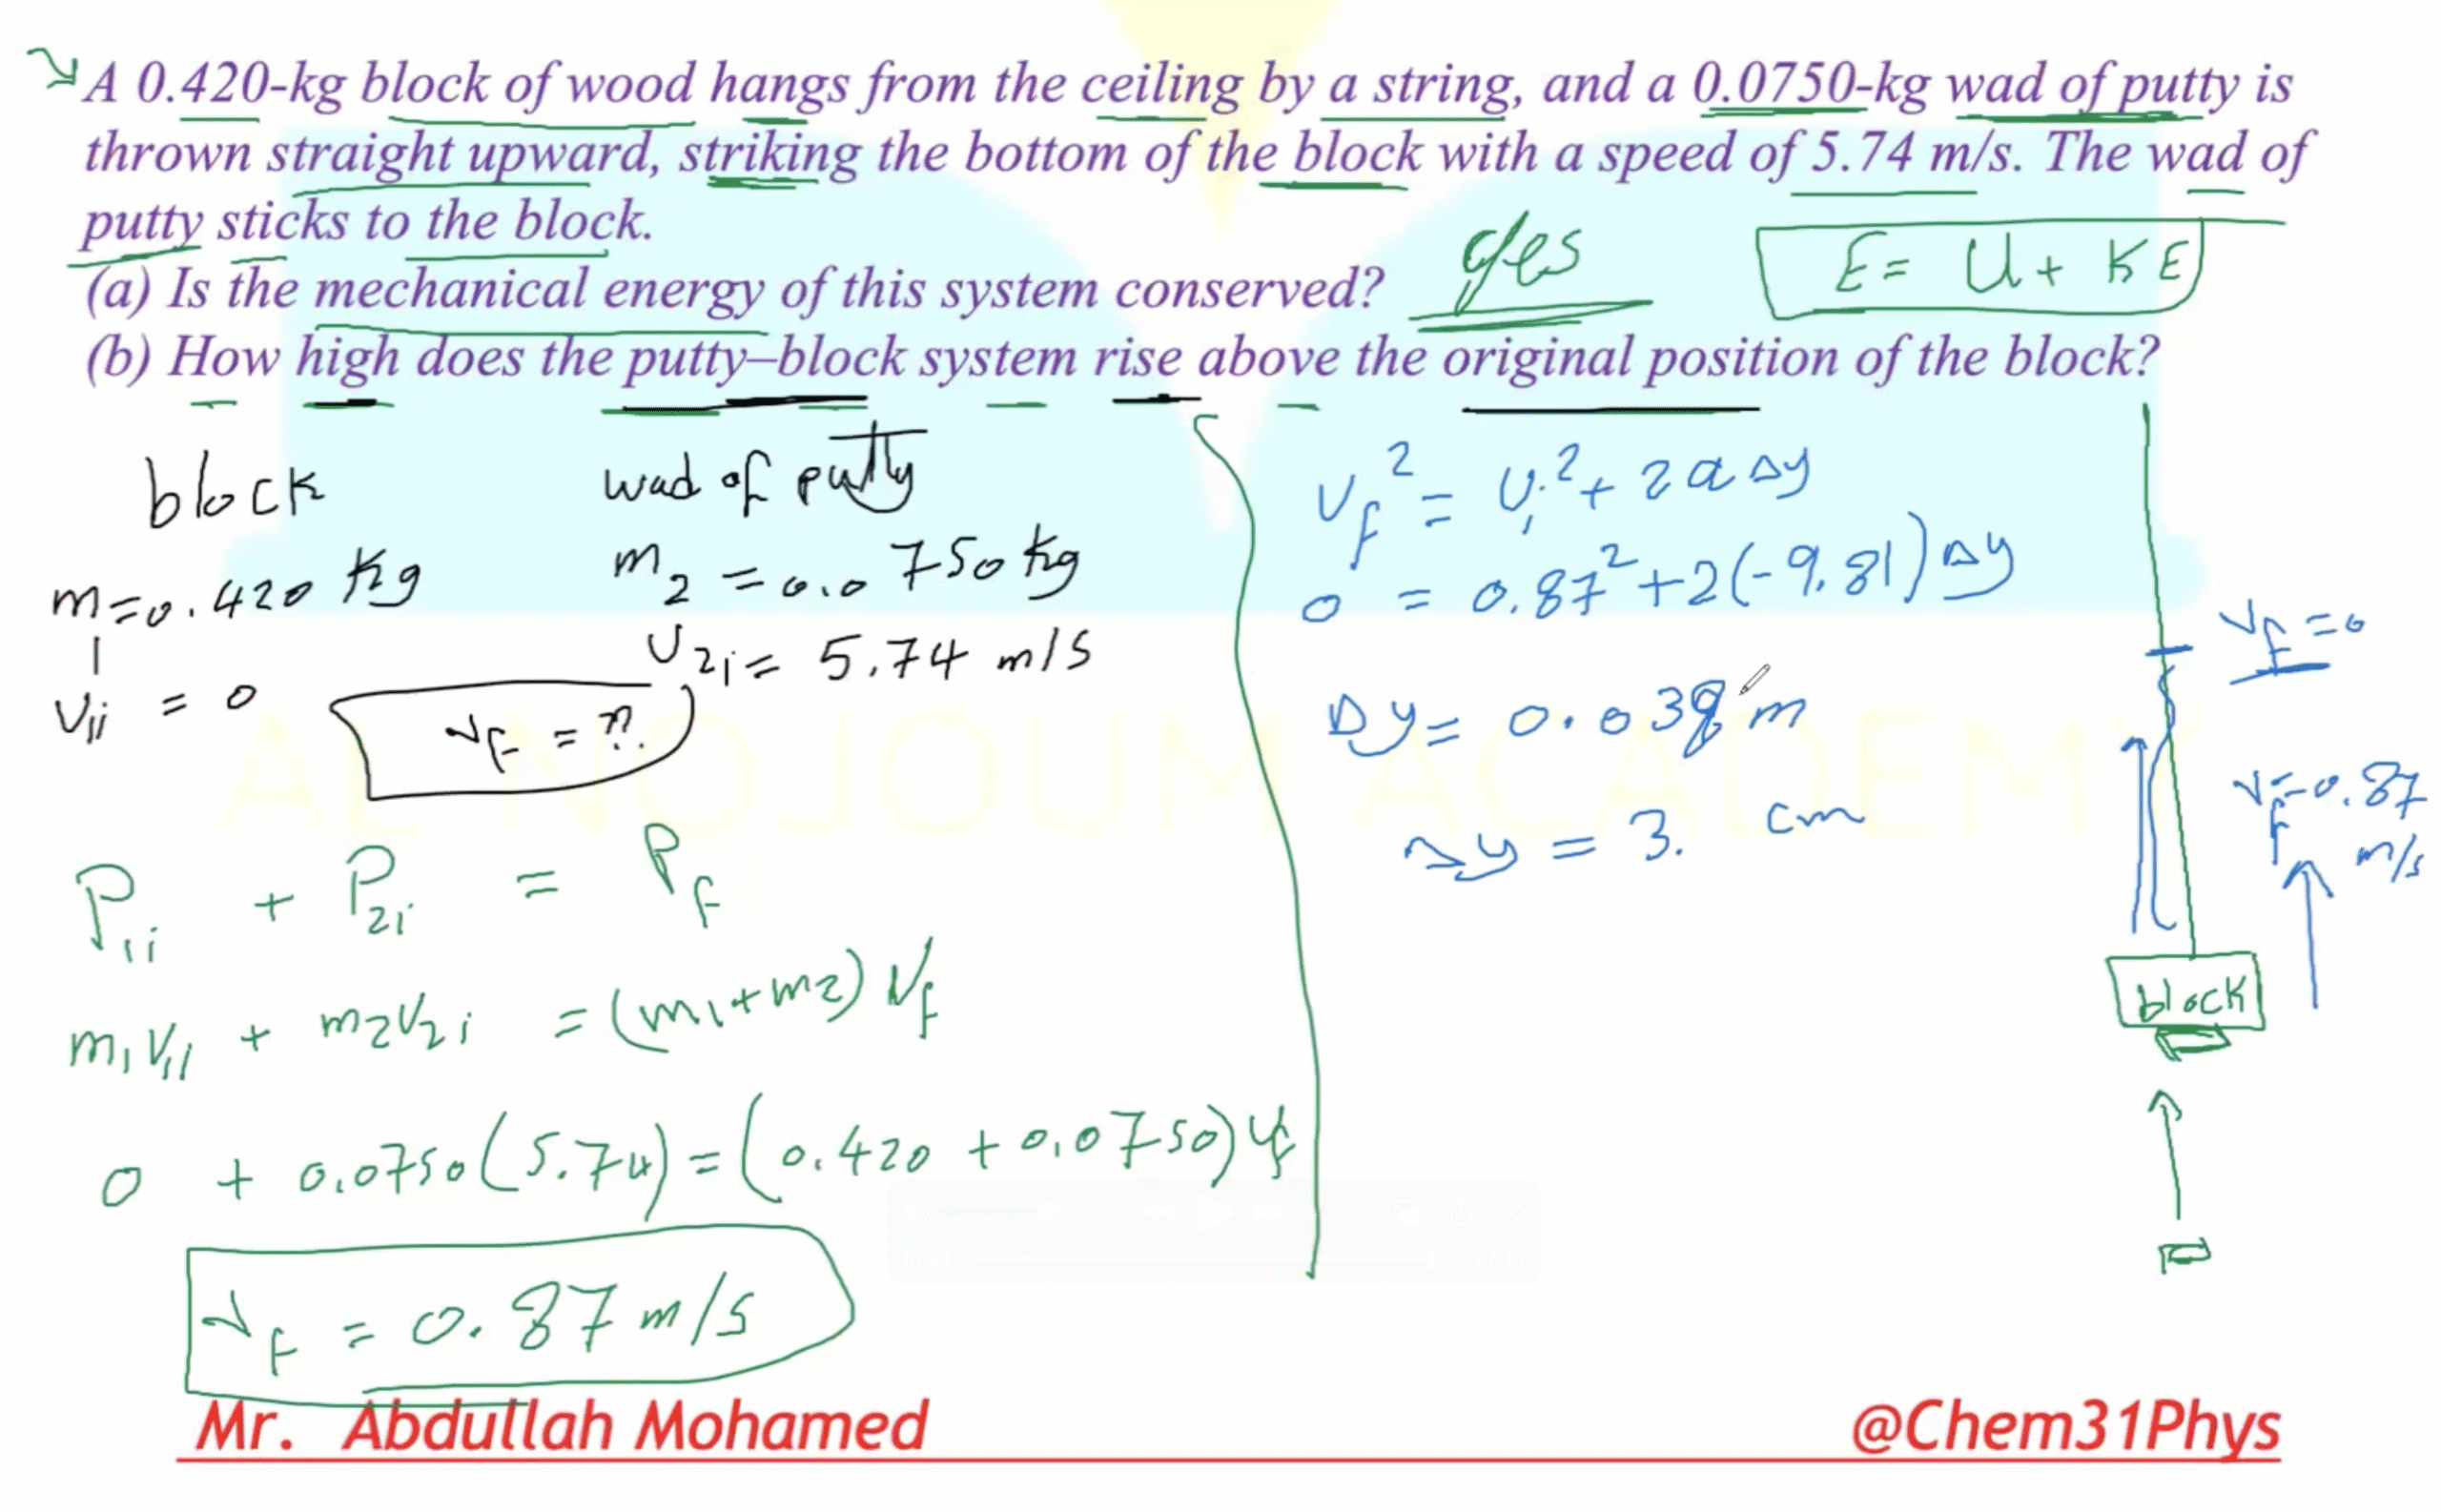 A 0.420-kg block of wood hangs from the ceiling by a string, and a 0.0750-kg wad of putty is
thrown straight upward, striking the bottom of the block with a speed of 5.74 m/s. The wad of
putty sticks to the block.
(a) Is the mechanical energy of this system conserved? yes
E = U + KE
(b) How high does the putty–block system rise above the original position of the block?
block
m₁ = 0.420 kg
v₁ᵢ = 0
wad of putty
m₂ = 0.0750 kg
v₂ᵢ = 5.74 m/s
v_F = ?
P₁ᵢ + P₂ᵢ = P_F
m₁v₁ᵢ + m₂v₂ᵢ = (m₁+m₂) v_f
0 + 0.0750(5.74) = (0.420 + 0.0750) v_f
v_F = 0.87 m/s
v_f² = v_i² + 2aΔy
0 = 0.87² + 2(-9.81)Δy
Δy = 0.038 m
Δy = 3. cm
v_F = 0
v_F = 0.87
m/s
block
AL NOJOUM ACADEMY
Mr. Abdullah Mohamed
@Chem31Phys